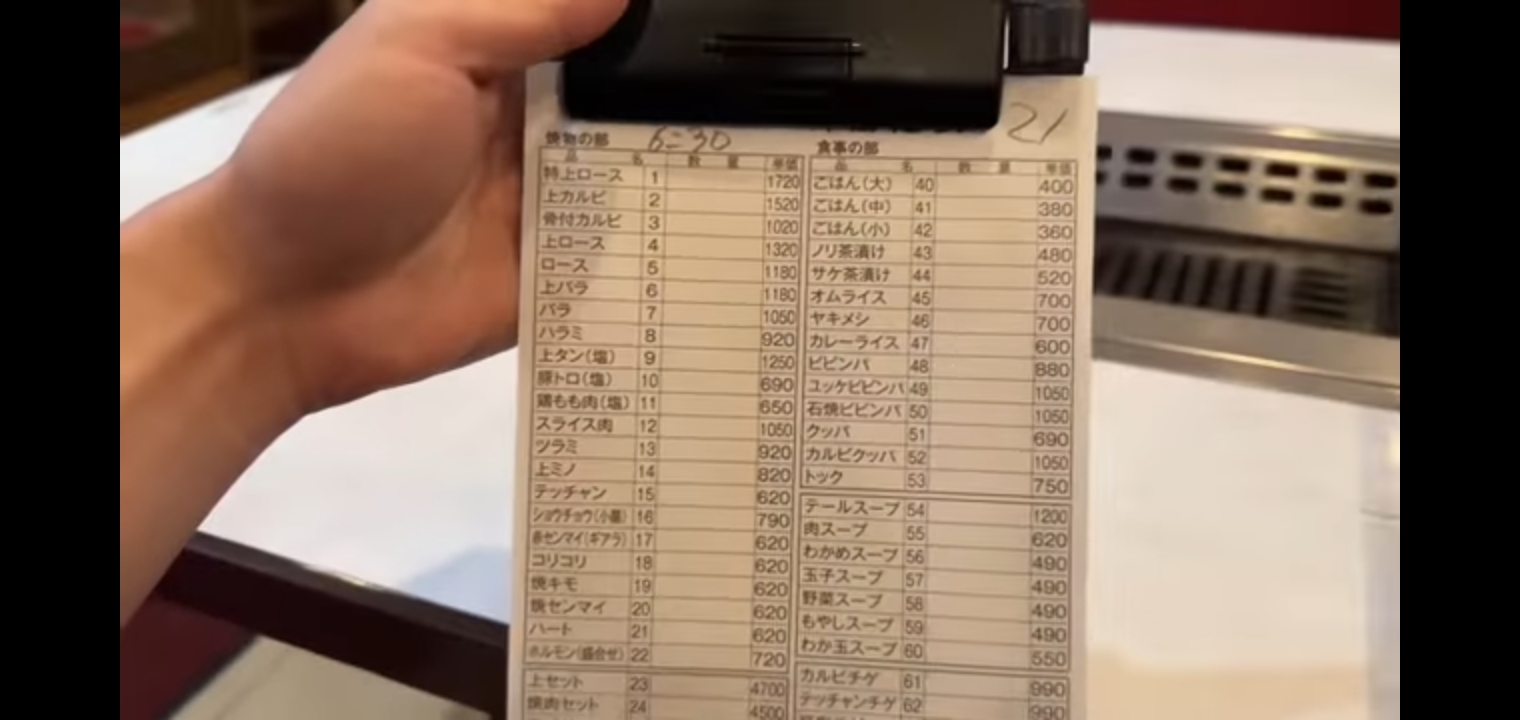 21
焼物の部 6=30
品 名 数 量 単価
特上ロース 1 1720
上カルビ 2 1520
骨付カルビ 3 1020
上ロース 4 1320
ロース 5 1180
上バラ 6 1180
バラ 7 1050
ハラミ 8 920
上タン(塩) 9 1250
豚トロ(塩) 10 690
鶏もも肉(塩) 11 650
スライス肉 12 1050
ツラミ 13 920
上ミノ 14 820
テッチャン 15 620
ショウチョウ(小腸) 16 790
赤センマイ(ギアラ) 17 620
コリコリ 18 620
焼キモ 19 620
焼センマイ 20 620
ハート 21 620
ホルモン(盛合せ) 22 720
上セット 23 4700
焼肉セット 24 4500
食事の部
品 名 数 量 単価
ごはん(大) 40 400
ごはん(中) 41 380
ごはん(小) 42 360
ノリ茶漬け 43 480
サケ茶漬け 44 520
オムライス 45 700
ヤキメシ 46 700
カレーライス 47 600
ビビンバ 48 880
ユッケビビンバ 49 1050
石焼ビビンバ 50 1050
クッパ 51 690
カルビクッパ 52 1050
トック 53 750
テールスープ 54 1200
肉スープ 55 620
わかめスープ 56 490
玉子スープ 57 490
野菜スープ 58 490
もやしスープ 59 490
わか玉スープ 60 550
カルビチゲ 61 990
テッチャンチゲ 62 990